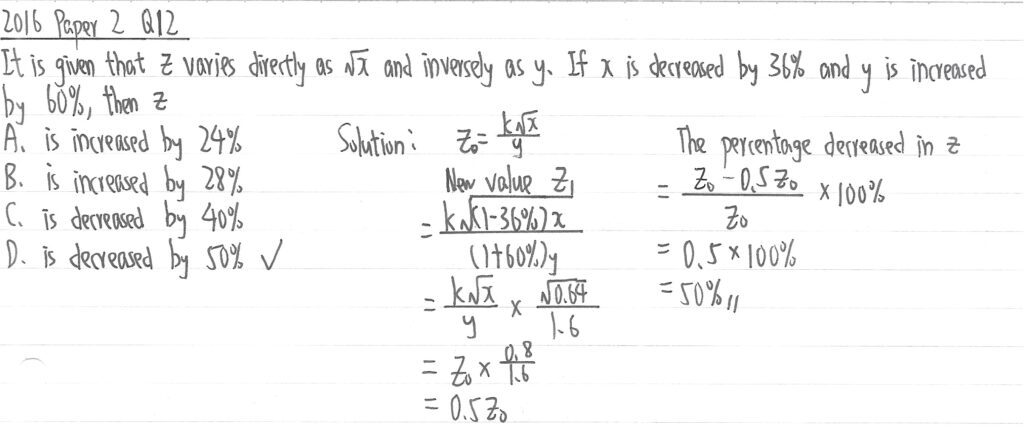 2016 Paper 2 Q12
It is given that z varies directly as √x and inversely as y. If x is decreased by 36% and y is increased
by 60%, then z
A. is increased by 24%
B. is increased by 28%
C. is decreased by 40%
D. is decreased by 50% ✓
Solution: z₀ = k√x / y
New value z₁
= k√((1-36%)x) / (1+60%)y
= k√x / y × √0.64 / 1.6
= z₀ × 0.8 / 1.6
= 0.5z₀
The percentage decreased in z
= (z₀ - 0.5z₀) / z₀ × 100%
= 0.5 × 100%
= 50% //